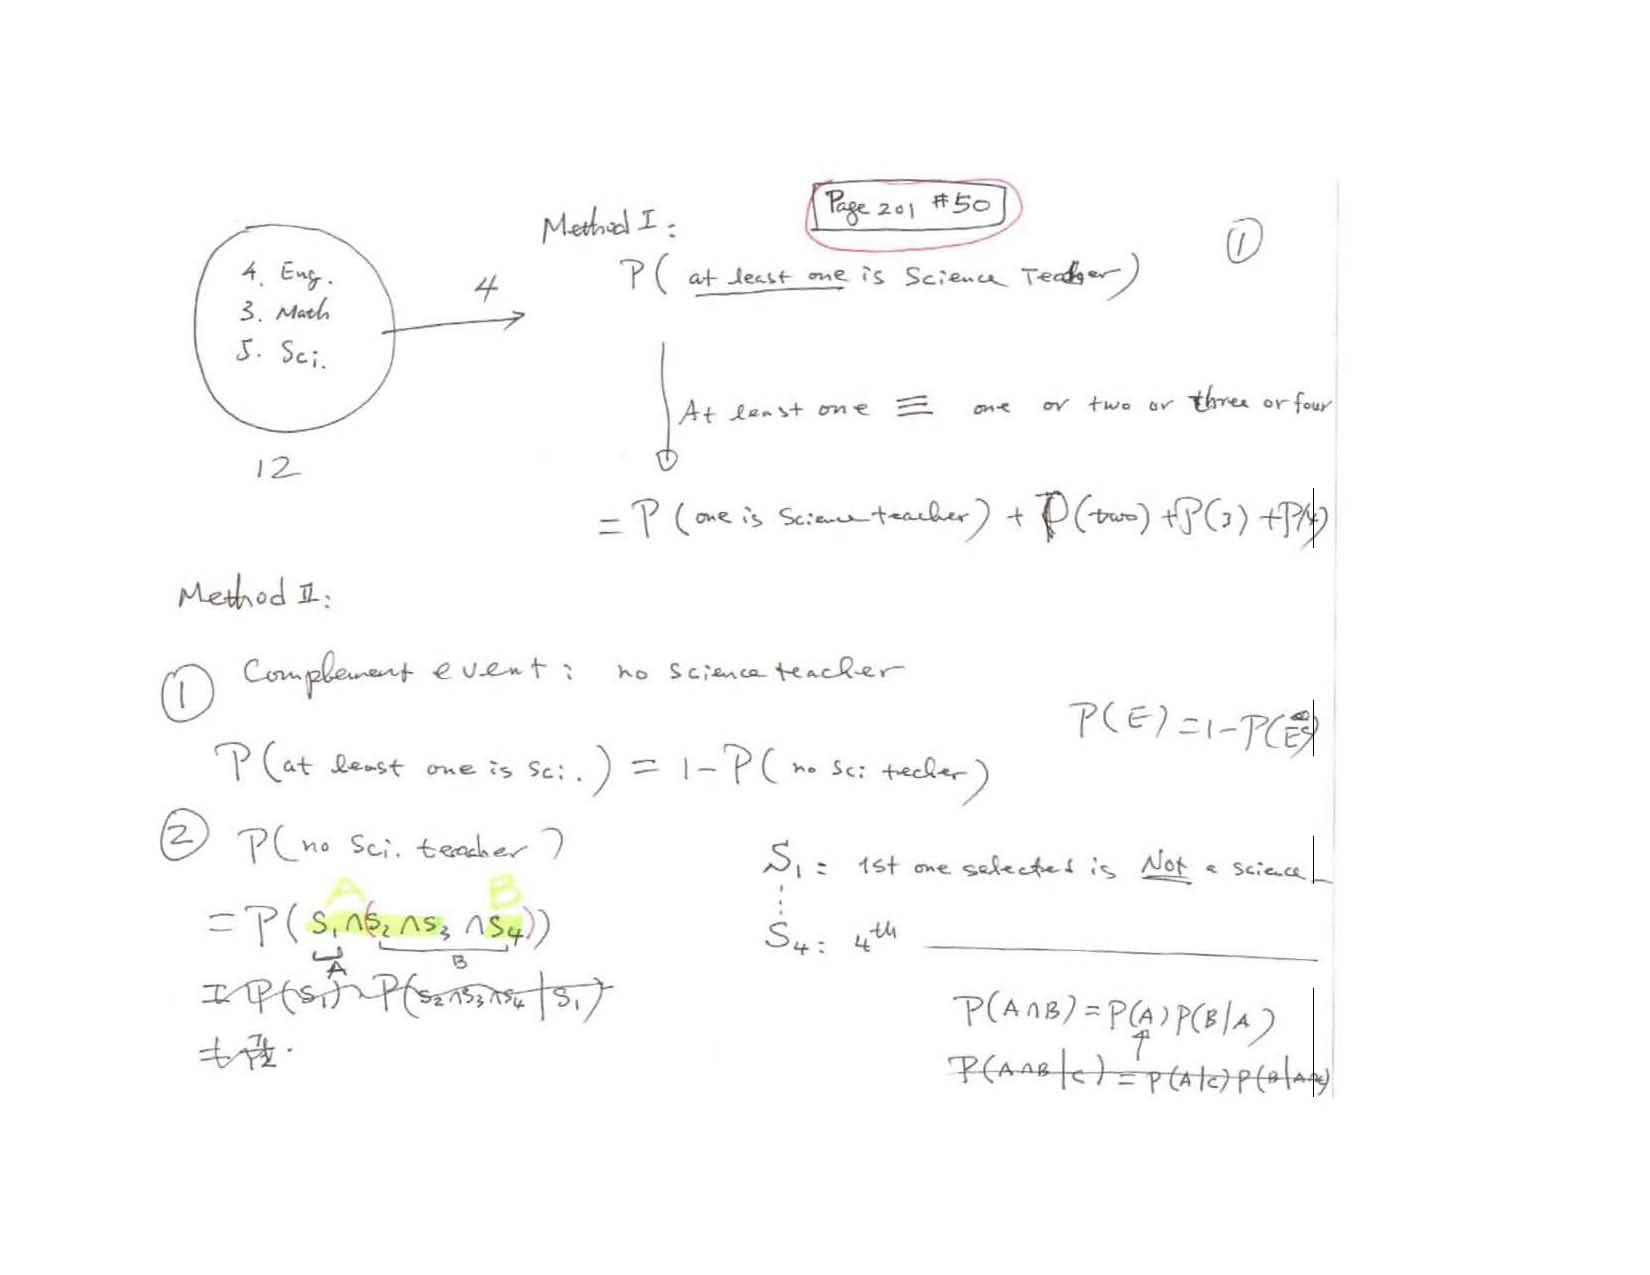 Page 201 #50
Method I:
①
P( at least one is Science Teacher)
4. Eng.
3. Math
5. Sci.
4
12
At least one ≡ one or two or three or four
= P (one is Science teacher) + P(two) +P(3) +P(4)
Method II:
① Complement event: no science teacher
P(E) = 1-P(E)
P(at least one is Sci.) = 1-P( no Sci techer)
② P(no Sci. teacher)
S1 : 1st one selected is Not a science
A B
= P( S1 ∩(S2 ∩S3 ∩S4))
S4 : 4th
A B
= P(S1) P(S2∩S3∩S4|S1)
P(A∩B) = P(A) P(B|A)
P(A∩B|C) = P(A|C) P(B|A∩C)